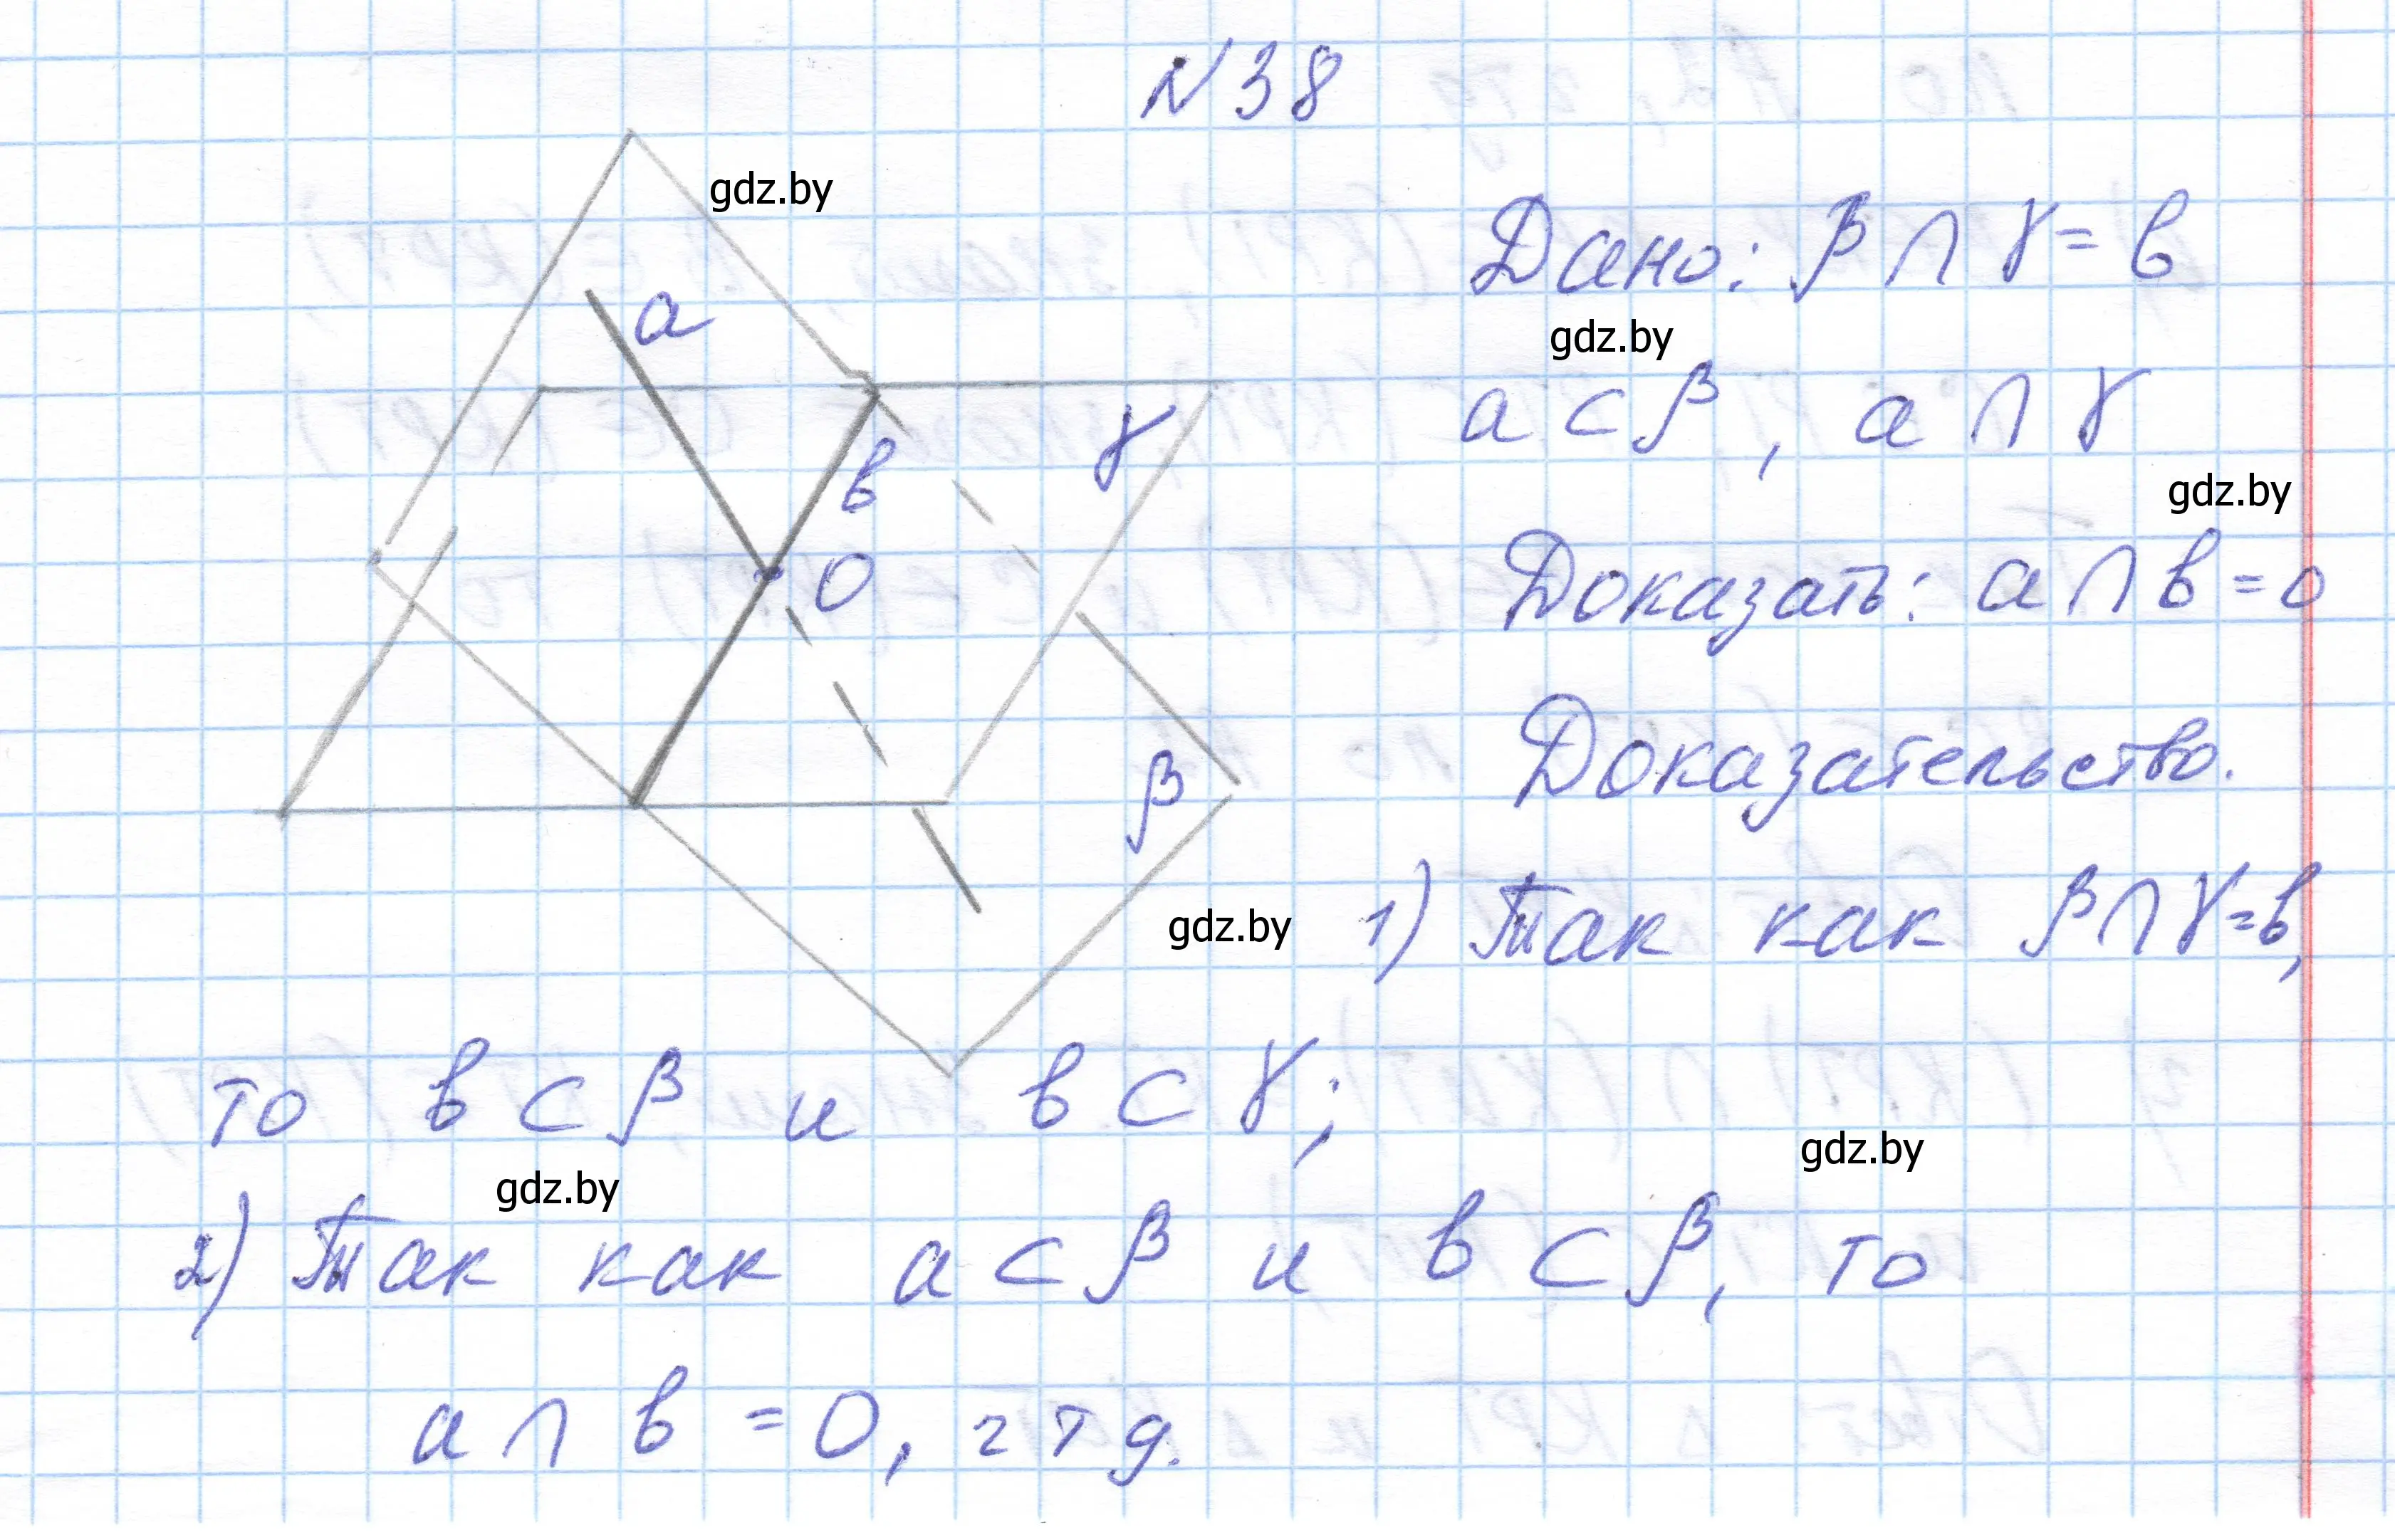 N38
gdz.by
Дано: β ∩ γ = в
a
gdz.by
a ⊂ β, a ∩ γ
γ
в
gdz.by
O
Доказать: a ∩ в = O
Доказательство.
β
gdz.by
1) Так как β ∩ γ = в,
то в ⊂ β и в ⊂ γ;
gdz.by
gdz.by
2) Так как a ⊂ β и в ⊂ β, то
a ∩ в = O, чтд.